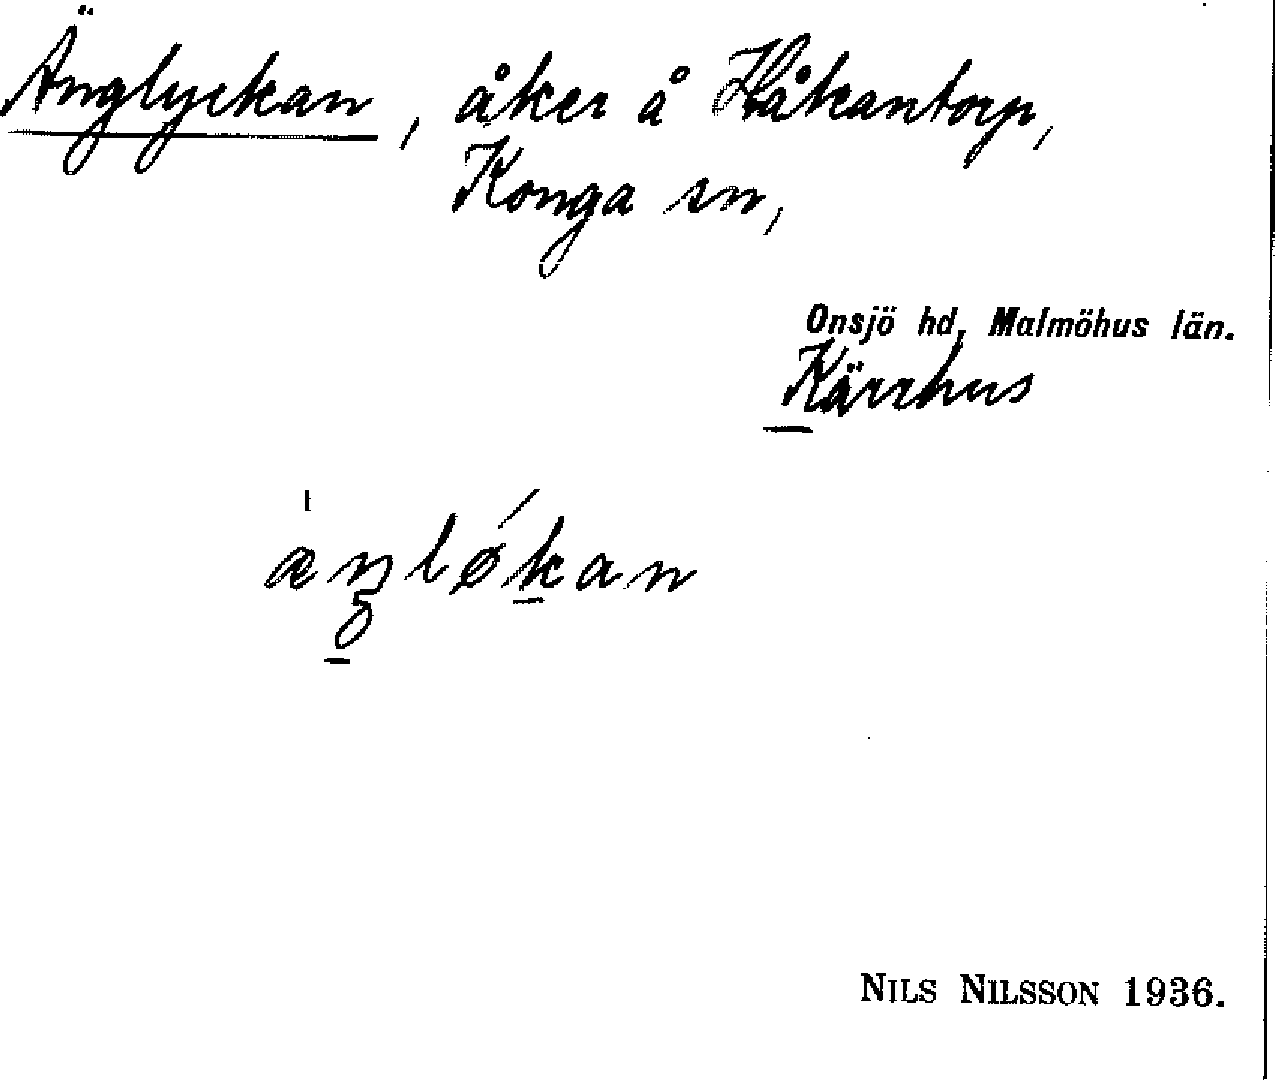 Änglyckan, åker å Håkantorp,
Konga sn,
Onsjö hd, Malmöhus län.
Kärrhus
æŋløkan
NILS NILSSON 1936.